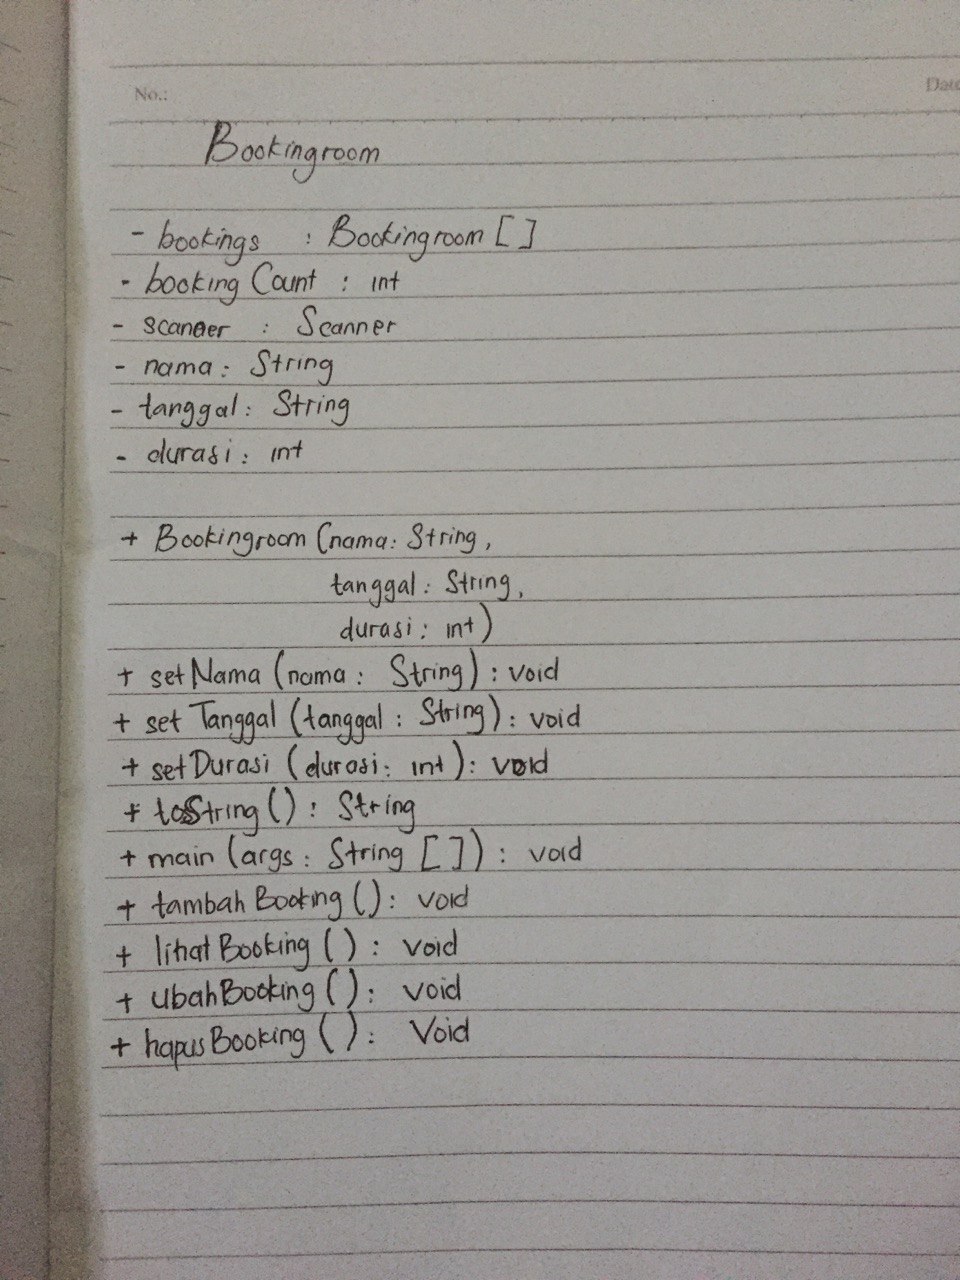 No.:
Date
Bookingroom
- bookings : Bookingroom []
- bookingCount : int
- scanner : Scanner
- nama : String
- tanggal : String
- durasi : int
+ Bookingroom (nama : String,
tanggal : String,
durasi : int)
+ setNama (nama : String) : void
+ setTanggal (tanggal : String) : void
+ setDurasi (durasi : int) : void
+ toString () : String
+ main (args : String []) : void
+ tambahBooking () : void
+ lihatBooking () : void
+ ubahBooking () : void
+ hapusBooking () : Void